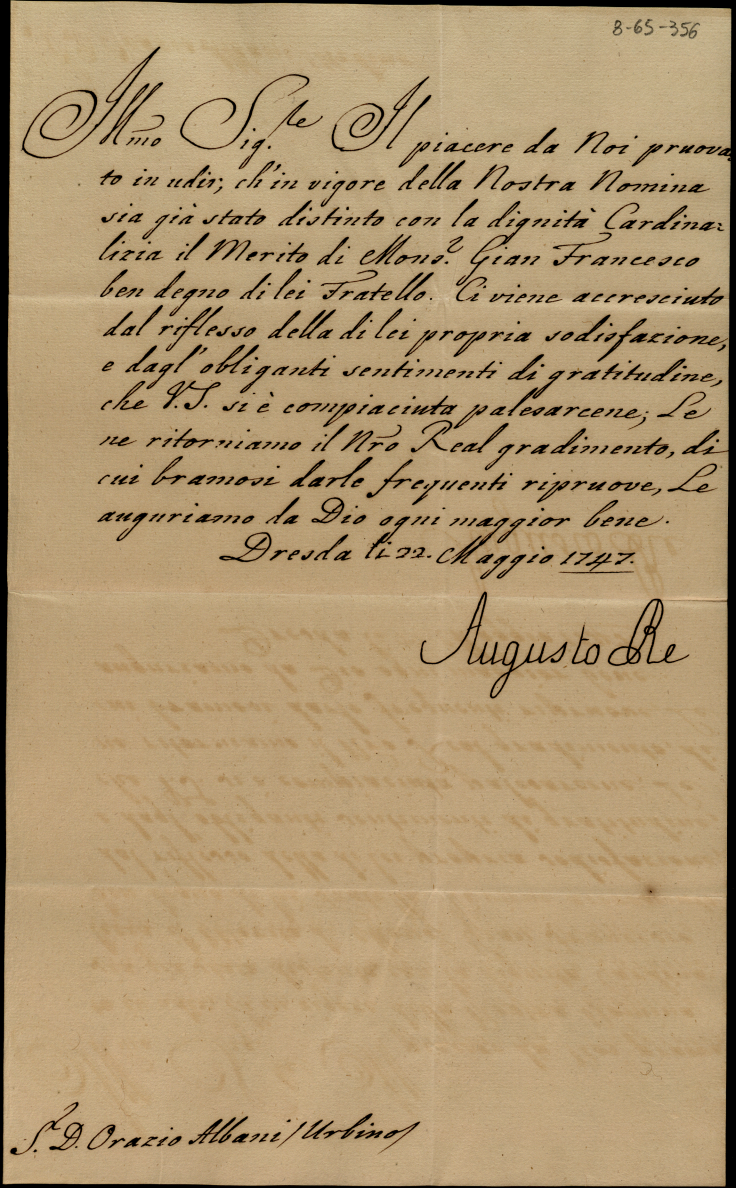 8-65-356
Illmo Sig.re Il piacere da Noi pruova-
to in udir, ch'in vigore della Nostra Nomina
sia già stato distinto con la dignità Cardina-
lizia il Merito di Mons.r Gian Francesco
ben degno di lei Fratello. Ci viene accresciuto
dal riflesso della di lei propria sodisfazione,
e dagl' obliganti sentimenti di gratitudine,
che V.S. si è compiaciuta palesarcene; Le
ne ritorniamo il Nro Real gradimento, di
cui bramosi darle frequenti ripruove, Le
auguriamo da Dio ogni maggior bene.
Dresda li 22. Maggio 1747.
Augusto Re
S.r D. Orazio Albani /Urbino/